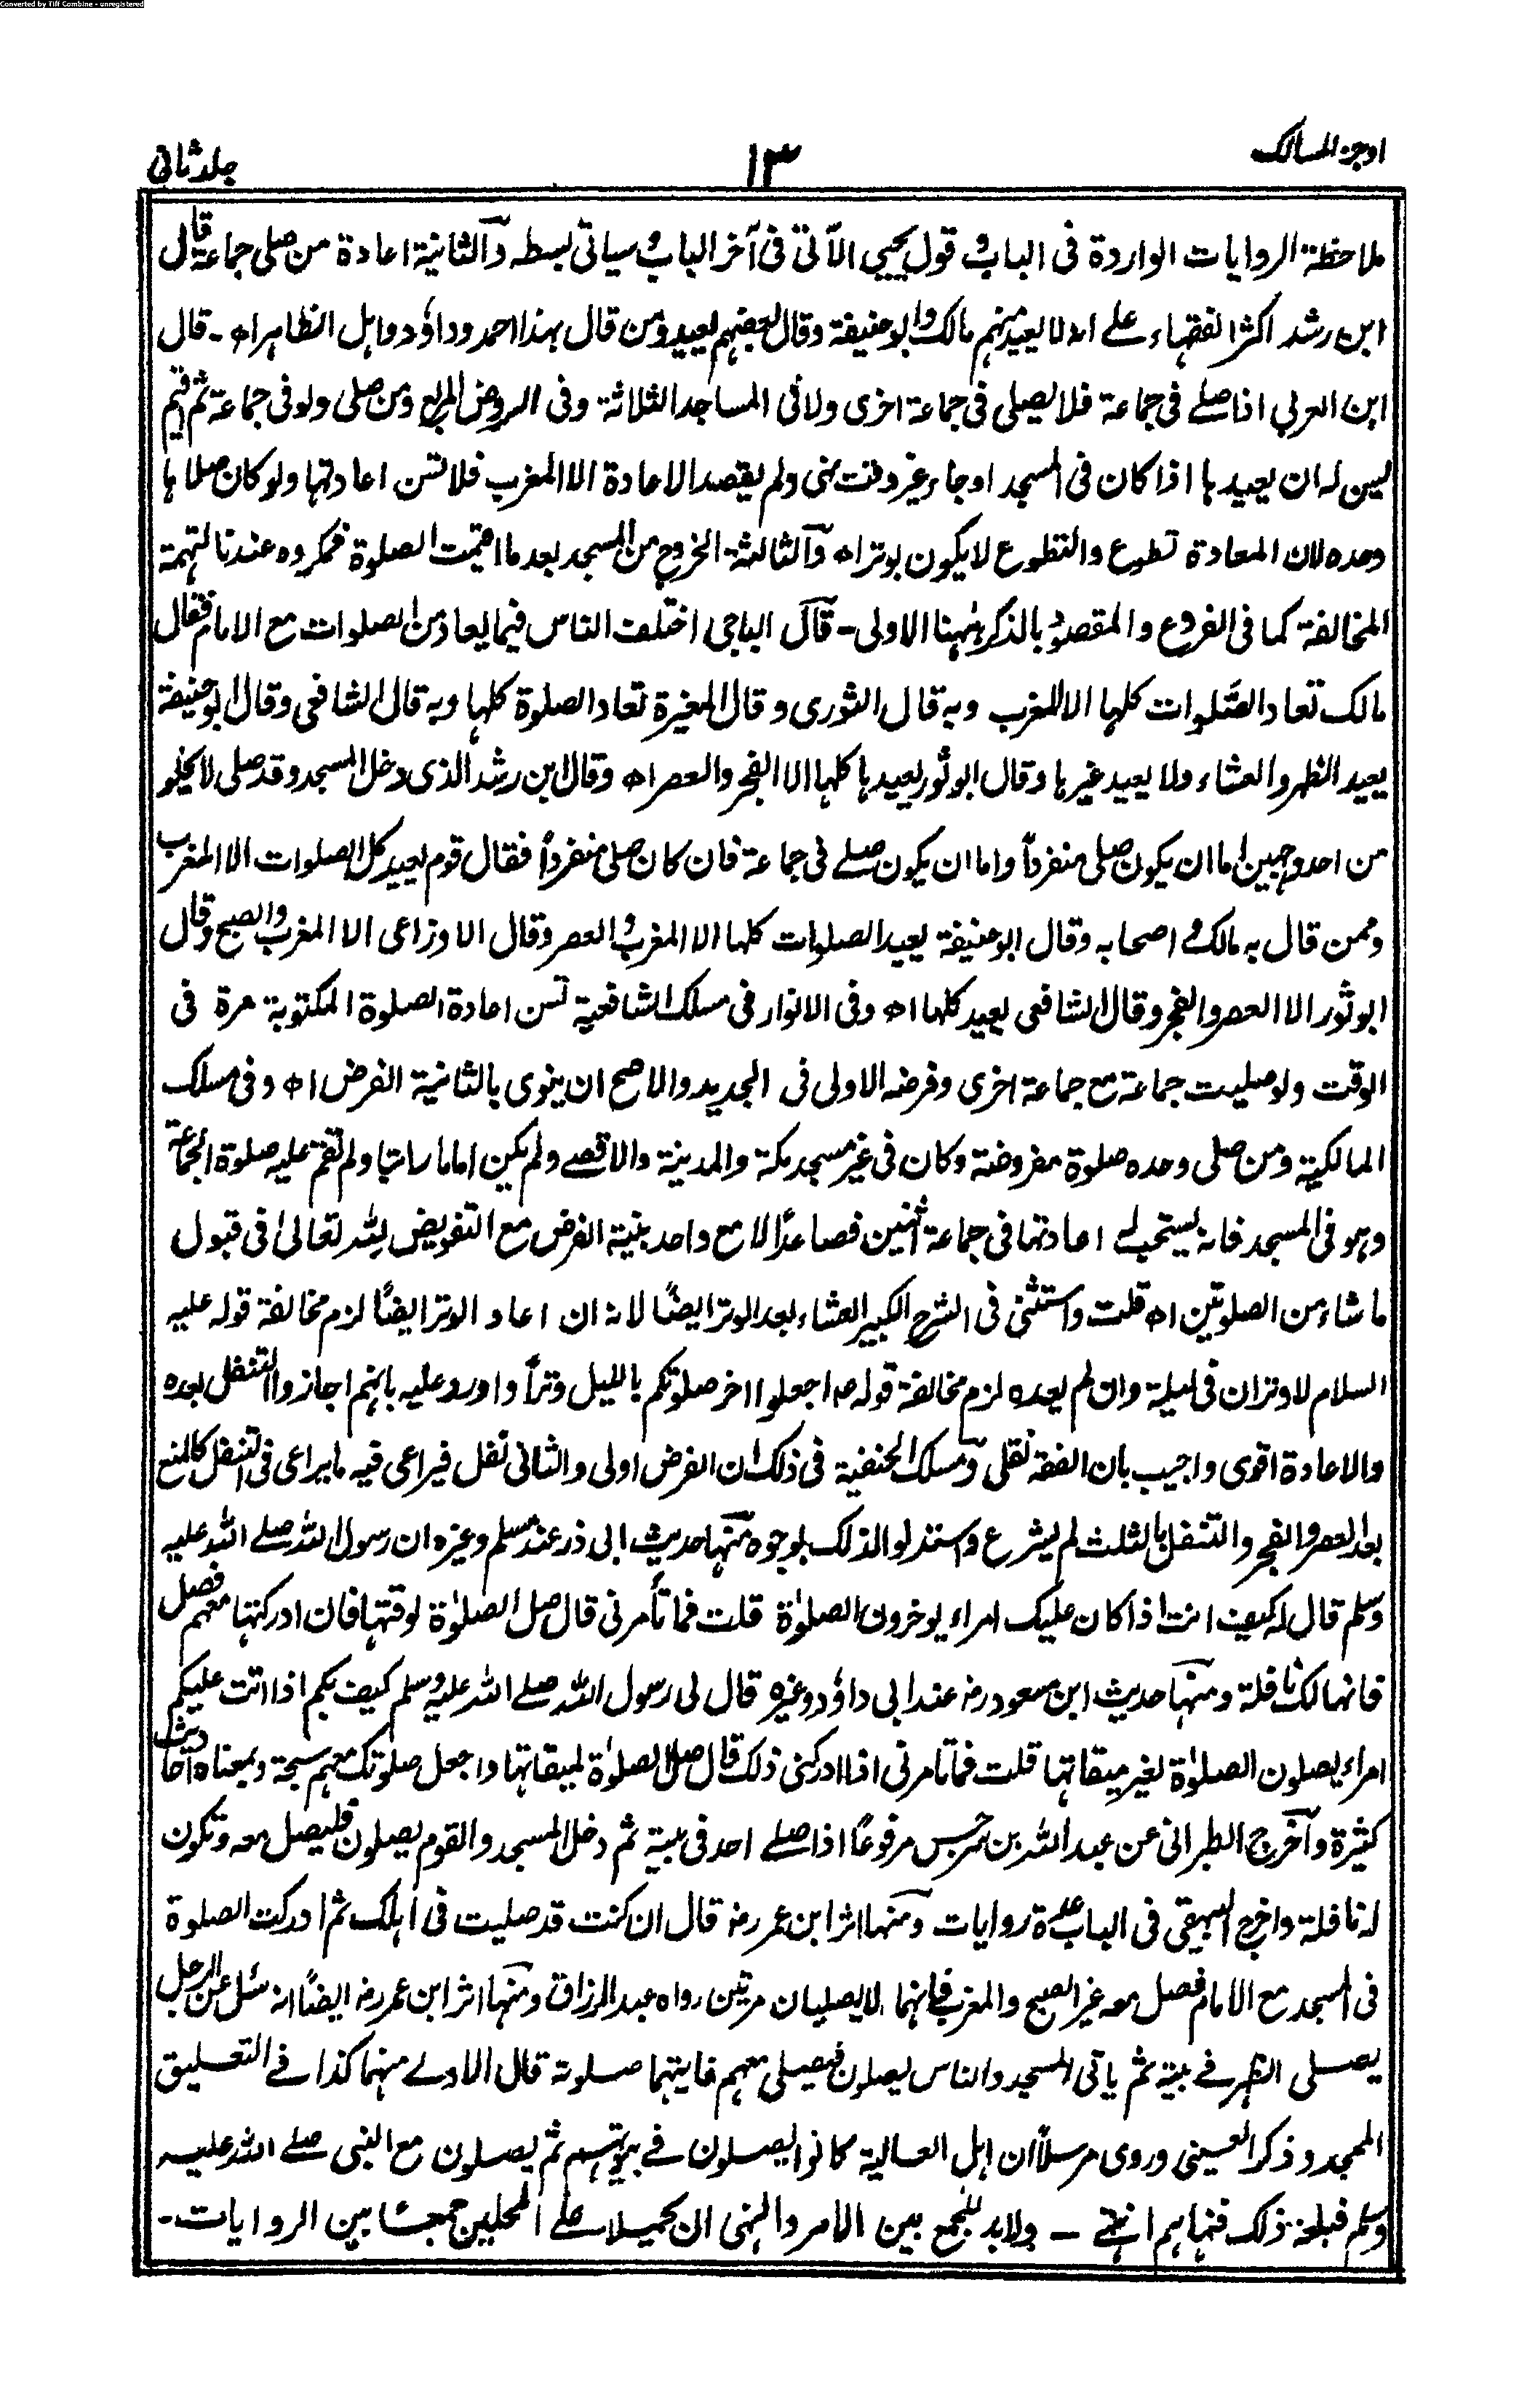 Converted by Tiff Combine - unregistered
اوجز المسالك
١٣
جلد ثانی
ملاحظة الروايات الواردة فى الباب و قول يحيى الآتى فى آخر الباب و سياتى بسطه والثانية اعادة من صلى جماعة قال
ابن رشد اكثر الفقهاء على انه لا يعيد منهم مالك وابو حنيفة وقال بعضهم يعيد ومن قال بهذا احمد وداؤد واهل الظاهر اھ - قال
ابن العربي اذا صلے فى جماعة فلا يصلى فى جماعة اخرى ولا فى المساجد الثلاثة وفى الروض المربع ومن صلى ولو فى جماعة ثم اقيم
ليسن له ان يعيدها اذا كان فى المسجد او جاء غير وقت نهى ولم يقصد الاعادة الا المغرب فلا تسن اعادتها ولو كان صلاها
وحده لان المعادة تطوع والتطوع لا يكون بوتر اھ والثالثة الخروج من المسجد بعد ما اقيمت الصلوة فمكروه عندنا لتهمة
المخالفة كما فى الفروع والمقصود بالذكر ههنا الاولى - قال الباجى اختلف الناس فيما يعاد من الصلوات مع الامام فقال
مالك تعاد الصلوات كلها الا المغرب وبه قال الثورى وقال المغيرة تعاد الصلوة كلها وبه قال الشافعى وقال ابو حنيفة
يعيد الظهر والعشاء ولا يعيد غيرها وقال ابو ثور يعيدها كلها الا الفجر والعصر اھ وقال ابن رشد الذى دخل المسجد وقد صلى لا يخلو
من احد وجهين اما ان يكون صلى منفرداً واما ان يكون صلے فى جماعة فان كان صلى منفرداً فقال قوم يعيد كل الصلوات الا المغرب
وممن قال به مالك و اصحابه وقال ابو حنيفة يعيد الصلوات كلها الا المغرب و العصر وقال الاوزاعى الا المغرب والصبح وقال
ابو ثور الا العصر والفجر وقال الشافعى يعيد كلها اھ وفى الانوار فى مسلك الشافعية تسن اعادة الصلوة المكتوبة مرة فى
الوقت ولو صليت جماعة مع جماعة اخرى وفرضه الاولى فى الجديد والاصح ان ينوى بالثانية الفرض اھ وفى مسلك
المالكية ومن صلى وحده صلوة مفروضة وكان فى غير مسجد مكة والمدينة والاقصے ولم يكن اماما راتبا ولم تقم عليه صلوة الجماعة
وهو فى المسجد فانه يستحب له اعادتها فى جماعة اثنين فصاعدًا لا مع واحد بنية الفرض مع التفويض لله تعالى فى قبول
ما شاء من الصلوتين اھ قلت واستثنى فى الشرح الكبير العشاء بعد الوتر ايضًا لانه ان اعاد الوتر ايضًا لزم مخالفة قوله عليه
السلام لا وتران فى ليلة وان لم يعده لزم مخالفة قوله ؑ اجعلوا اخر صلوتكم بالليل وتراً واورد عليه بانهم اجازوا التنفل بعده
والاعادة اقوى واجيب بان الفقه نقلى ومسلك الحنفية فى ذلك ان الفرض اولى والثانى نفل فيراعى فيه ما يراعى فى التنفل كالمنع
بعد العصر والفجر والتنفل بالثلث لم يشرع واستدلوا لذلك بوجوه منها حديث ابى ذر عند مسلم وغيره ان رسول الله صلے الله عليه
وسلم قال له كيف انت اذا كان عليك امراء يوخرون الصلوٰة قلت فما تأمرنى قال صل الصلوٰة لوقتها فان ادركتها معهم فصل
فانها لك نافلة ومنها حديث ابن مسعود رضـ عند ابى داؤد وغيره قال لى رسول الله صلے الله عليه وسلم كيف بكم اذا اتت عليكم
امراء يصلون الصلوٰة لغير ميقاتها قلت فما تامرنى اذا ادركنى ذلك قال صل الصلوٰة لميقاتها واجعل صلوتك معهم سبحة وبمعناه احاديث
كثيرة وآخرج الطبرانى عن عبد الله بن سرجس مرفوعًا اذا صلے احد فى بيته ثم دخل المسجد والقوم يصلون فليصل معه وتكون
له نافلة واخرج البيهقى فى الباب عدة روايات ومنها اثر ابن عمر رضـ قال ان كنت قد صليت فى اهلك ثم ادركت الصلوة
فى المسجد مع الامام فصل معه غير الصبح والمغرب فانهما لا يصليان مرتين رواه عبد الرزاق ومنها اثر ابن عمر رضـ ايضًا انه سئل عن الرجل
يصلى الظهر فے بيته ثم ياتى المسجد والناس يصلون فيصلى معهم فايتهما صلوته قال الاولے منهما كذا فے التعليق
الممجد وذكر العينى وروى مرسلاً ان اهل العالية كانوا يصلون فے بيوتهم ثم يصلون مع النبى صلے الله عليه
وسلم فبلغه ذلك فنهاهم انتهے - ولابد للجمع بين الامر والنهى ان يحملا علے المحلين جمعًا بين الروايات -